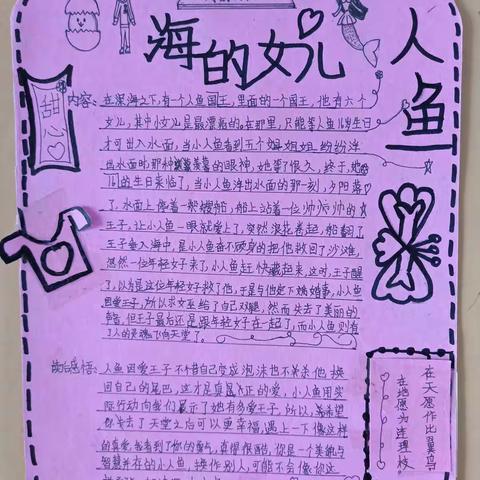 海的女儿
人鱼
甜心
内容:在深海之下,有一个人鱼国王,里面的一个国王,他有六个
女儿,其中小女儿是最漂亮的。在那里,只能等人鱼15岁生日
才可出入水面,当小人鱼看到五个姐姐姐纷纷浮
出水面时那种羡慕的眼神,她等了很久,终于,她
的生日来临了,当小人鱼浮出水面的那一刻,夕阳落
了,水面上停着一艘艘船,船上站着一位帅帅的
王子,让小人鱼一眼就爱上了,突然浪花卷起,船翻了
王子垂入海中,是小人鱼奋不顾身的把他救回了沙滩,
忽然一位年轻女子来了,小人鱼赶快藏起来,这时,王子醒
了,以为是这位年轻子救了他,于是与他定下婚事,小人鱼
因爱王子,所以求女巫给了自己双腿,然而失去了美丽的
声音,但王子最后还是跟年轻女子在一起了,而小人鱼则有
了人的灵魂飞向天堂了。
读后感悟:人鱼因爱王子不惜自己变成泡沫也不杀他换
回自己的尾巴,这才是真正的爱,小人鱼用实
际行动向我们展示了她有多爱王子,所以,我希望
你去了天堂之后可以更幸福,遇上一下像这样
的真爱,我看到了你的勇气,真得很酷,你是一个美貌与
智慧并存的小人鱼,换作别人,可能不会像你这
在天愿作比翼鸟
在地愿为连理枝。